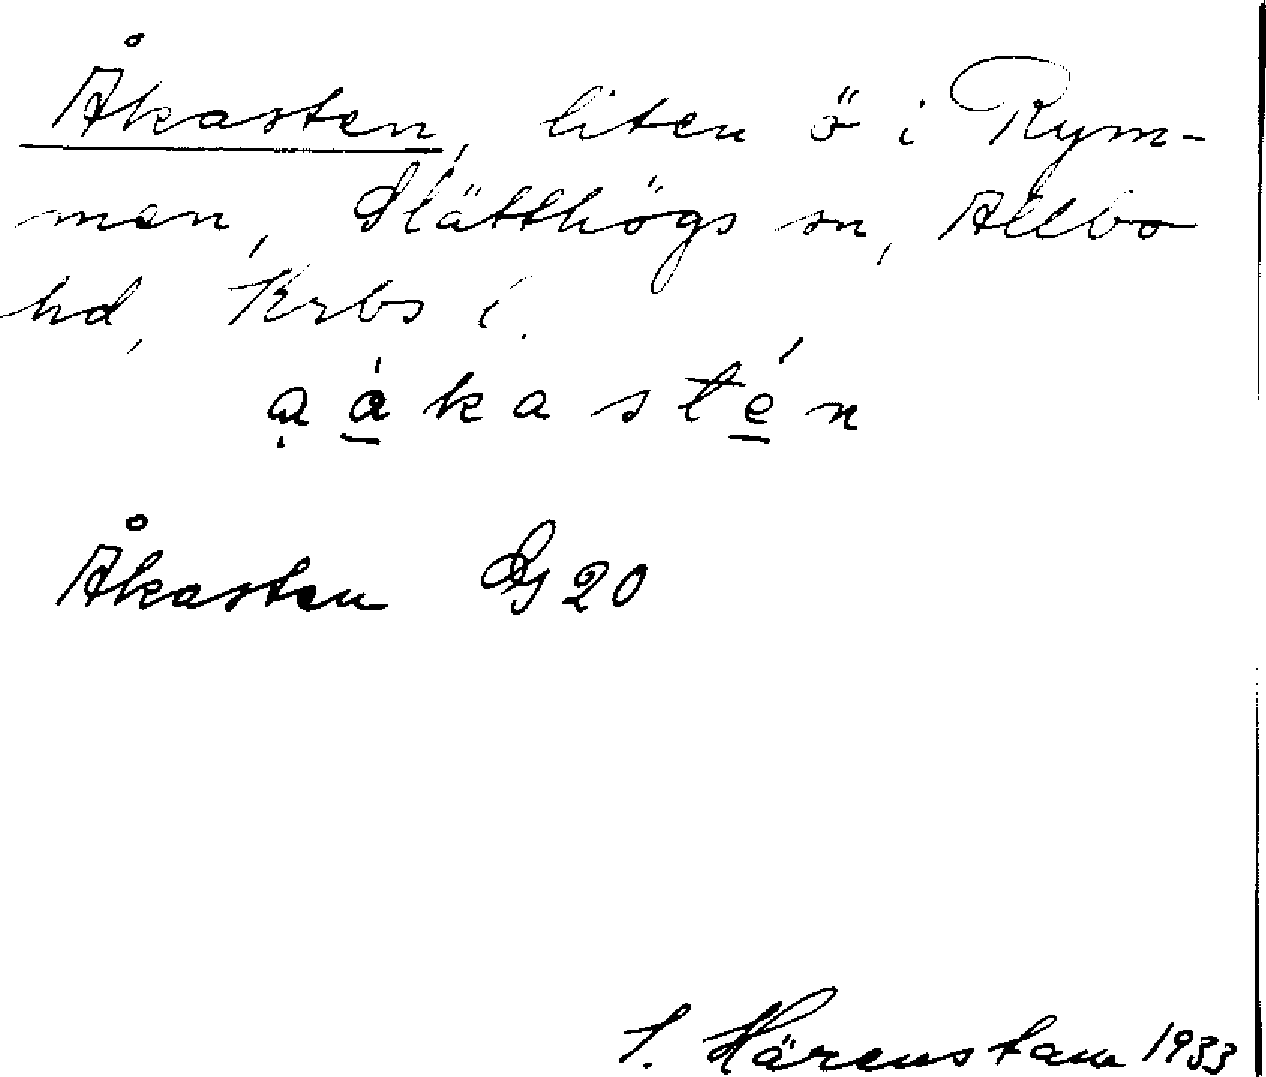 Åkasten, liten ö i Rym-
men, Slätthögs sn, Allbo
hd, Krbs l.
Åkasten GS 20
Härenstam 1933